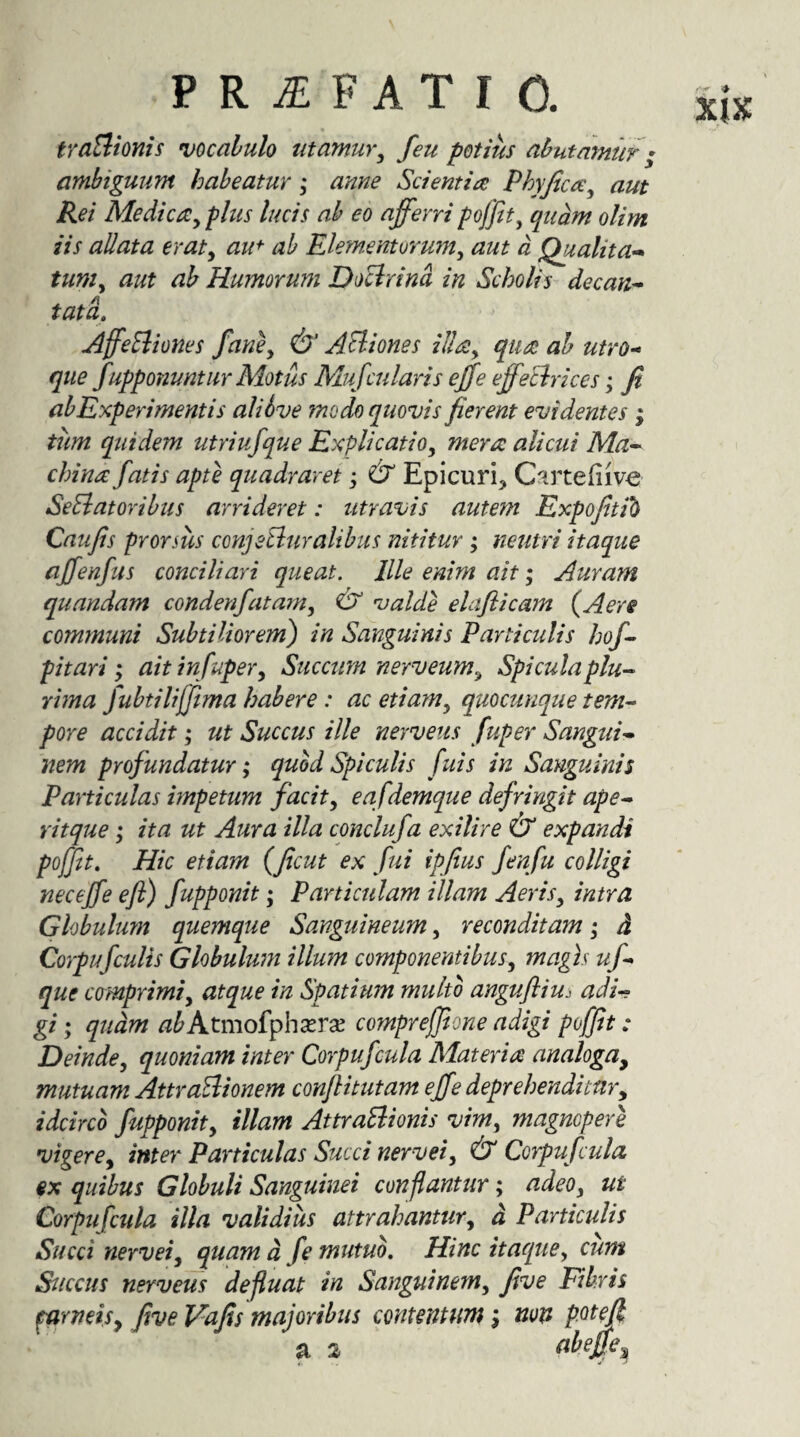 PRÆFATIO.
xix
tractionis vocabulo utamur, ſeu potius abutamur;
ambiguum habeatur; anne Scientiæ Phyſicæ, aut
Rei Medicæ, plus lucis ab eo afferri poſſit, quàm olim
iis allata erat, aut ab Elementorum, aut à Qualita-
tum, aut ab Humorum Doctrinâ in Scholis decan-
tatâ.
Affectiones ſanè, & Actiones illæ, quæ ab utro-
que ſupponuntur Motûs Muſcularis eſſe effectrices; ſi
ab Experimentis alióve modo quovis fierent evidentes;
tùm quidem utriuſque Explicatio, meræ alicui Ma-
chinæ ſatis aptè quadraret; & Epicuri, Carteſiive
Sectatoribus arrideret: utravis autem Expoſitiò
Cauſis prorsùs conjecturalibus nititur; neutri itaque
aſſenſus conciliari queat. Ille enim ait; Auram
quandam condenſatam, & valdè elaſticam (Aere
communi Subtiliorem) in Sanguinis Particulis hoſ-
pitari; ait inſuper, Succum nerveum, Spicula plu-
rima ſubtiliſſima habere: ac etiam, quocunque tem-
pore accidit; ut Succus ille nerveus ſuper Sangui-
nem profundatur; quòd Spiculis ſuis in Sanguinis
Particulas impetum facit, eaſdemque defringit ape-
ritque; ita ut Aura illa concluſa exilire & expandi
poſſit. Hic etiam (ſicut ex ſui ipſius ſenſu colligi
neceſſe eſt) ſupponit; Particulam illam Aeris, intra
Globulum quemque Sanguineum, reconditam; à
Corpuſculis Globulum illum componentibus, magìs uſ-
que comprimi, atque in Spatium multò anguſtius adi-
gi; quàm ab Atmoſphæræ compreſſione adigi poſſit:
Deinde, quoniam inter Corpuſcula Materiæ analoga,
mutuam Attractionem conſtitutam eſſe deprehenditur,
idcircò ſupponit, illam Attractionis vim, magnoperè
vigere, inter Particulas Succi nervei, & Corpuſcula
ex quibus Globuli Sanguinei conflantur; adeo, ut
Corpuſcula illa validiùs attrahantur, à Particulis
Succi nervei, quam à ſe mutuò. Hinc itaque, cùm
Succus nerveus defluat in Sanguinem, ſive Fibris
carneis, ſive Vaſis majoribus contentum; non poteſt
a 2
abeſſe,